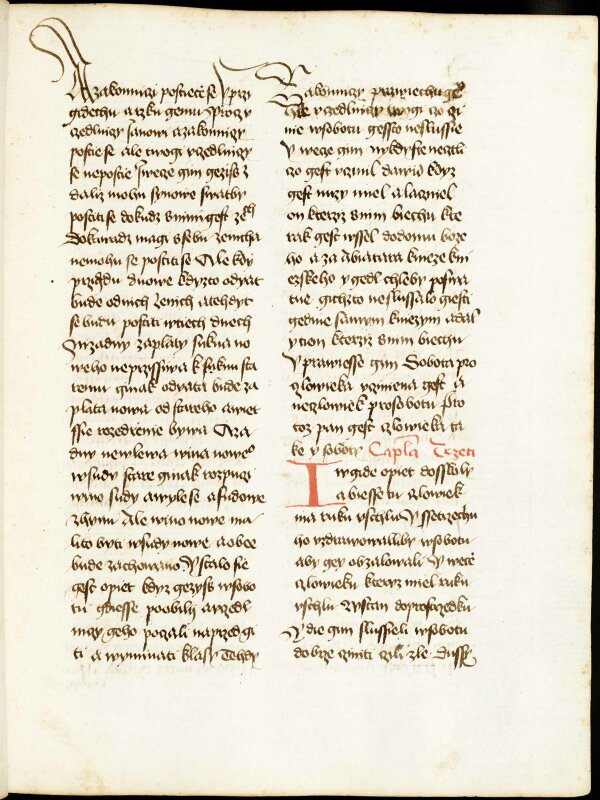 A zakonniczi postiechu se Y przi
gidechu a rzku gemu Procz v
czedlniczy Janowi a zakonniczy
postie se ale twogi vczedlniczy
se nepostie Y wecze gim geziss z
daliz mohu synowe swatby
postiti se dokudz s nimi gest zech
Dokawadz magi s sebu zenicha
nemohu se postiti se Ale kdy
przigdu dnowe kdyzto odgat
bude od nich zenich a tehdyt
se budu postiti w tiech dnech
zzadny zaplaty sukna no
weho neprzissiwa k sukni sta
remu ginak odgata bude za
plata nowa od stareho a wiet
ssie rozedrenie bywa A za
dny newlewa wina nowe
w sudy stare ginak rozpuzi
wino sudy a wyle se a sudowe
zhynu Ale wino nowe ma
lito byti w sudy nowe a obee
bude zachowano Y stalo sie
gest opiet kdyz gezyss w sobo
tu gdiesse po obilij a vczedl
niczy geho poczali naprzed gi
ti a wyminati klasy Tehdy
Zakonniczy prawiechu ge
Hle vczedlniczy twogi czo czi
nie w sobotu gessto neslussie
Y wecze gim Nikdy ste necztli
czo gest vczinil dawid kdyz
gest nuzy miel a laczniel
on kteryz s nim biechu kte
rak gest wssel do domu boze
ho a za Abiatara knieze kni
ezskeho y gedl chleby poswa
tne gichzto neslussalo giesti
gedine samym kniezim a dal
y tiem kterziz s nim biechu
Y prawiesse gim Sobota pro
czlowieka vczinena gest a
ne czlowiek pro sobotu Pro
toz pan gest czlowieka ta
ke y soboty Capla Trzeti
I wgide opiet do sskoly
a biesse tu czlowiek
ma ruku vschlu Y ssetrzechu
ho vzdrawowalliby w sobotu
aby gey obzalowali Y wece
czlowieku kteryz miel ruku
vschlu Zystan doprostrzedku
Y die gim slussieli w sobotu
dobrze cziniti czili zle dussy